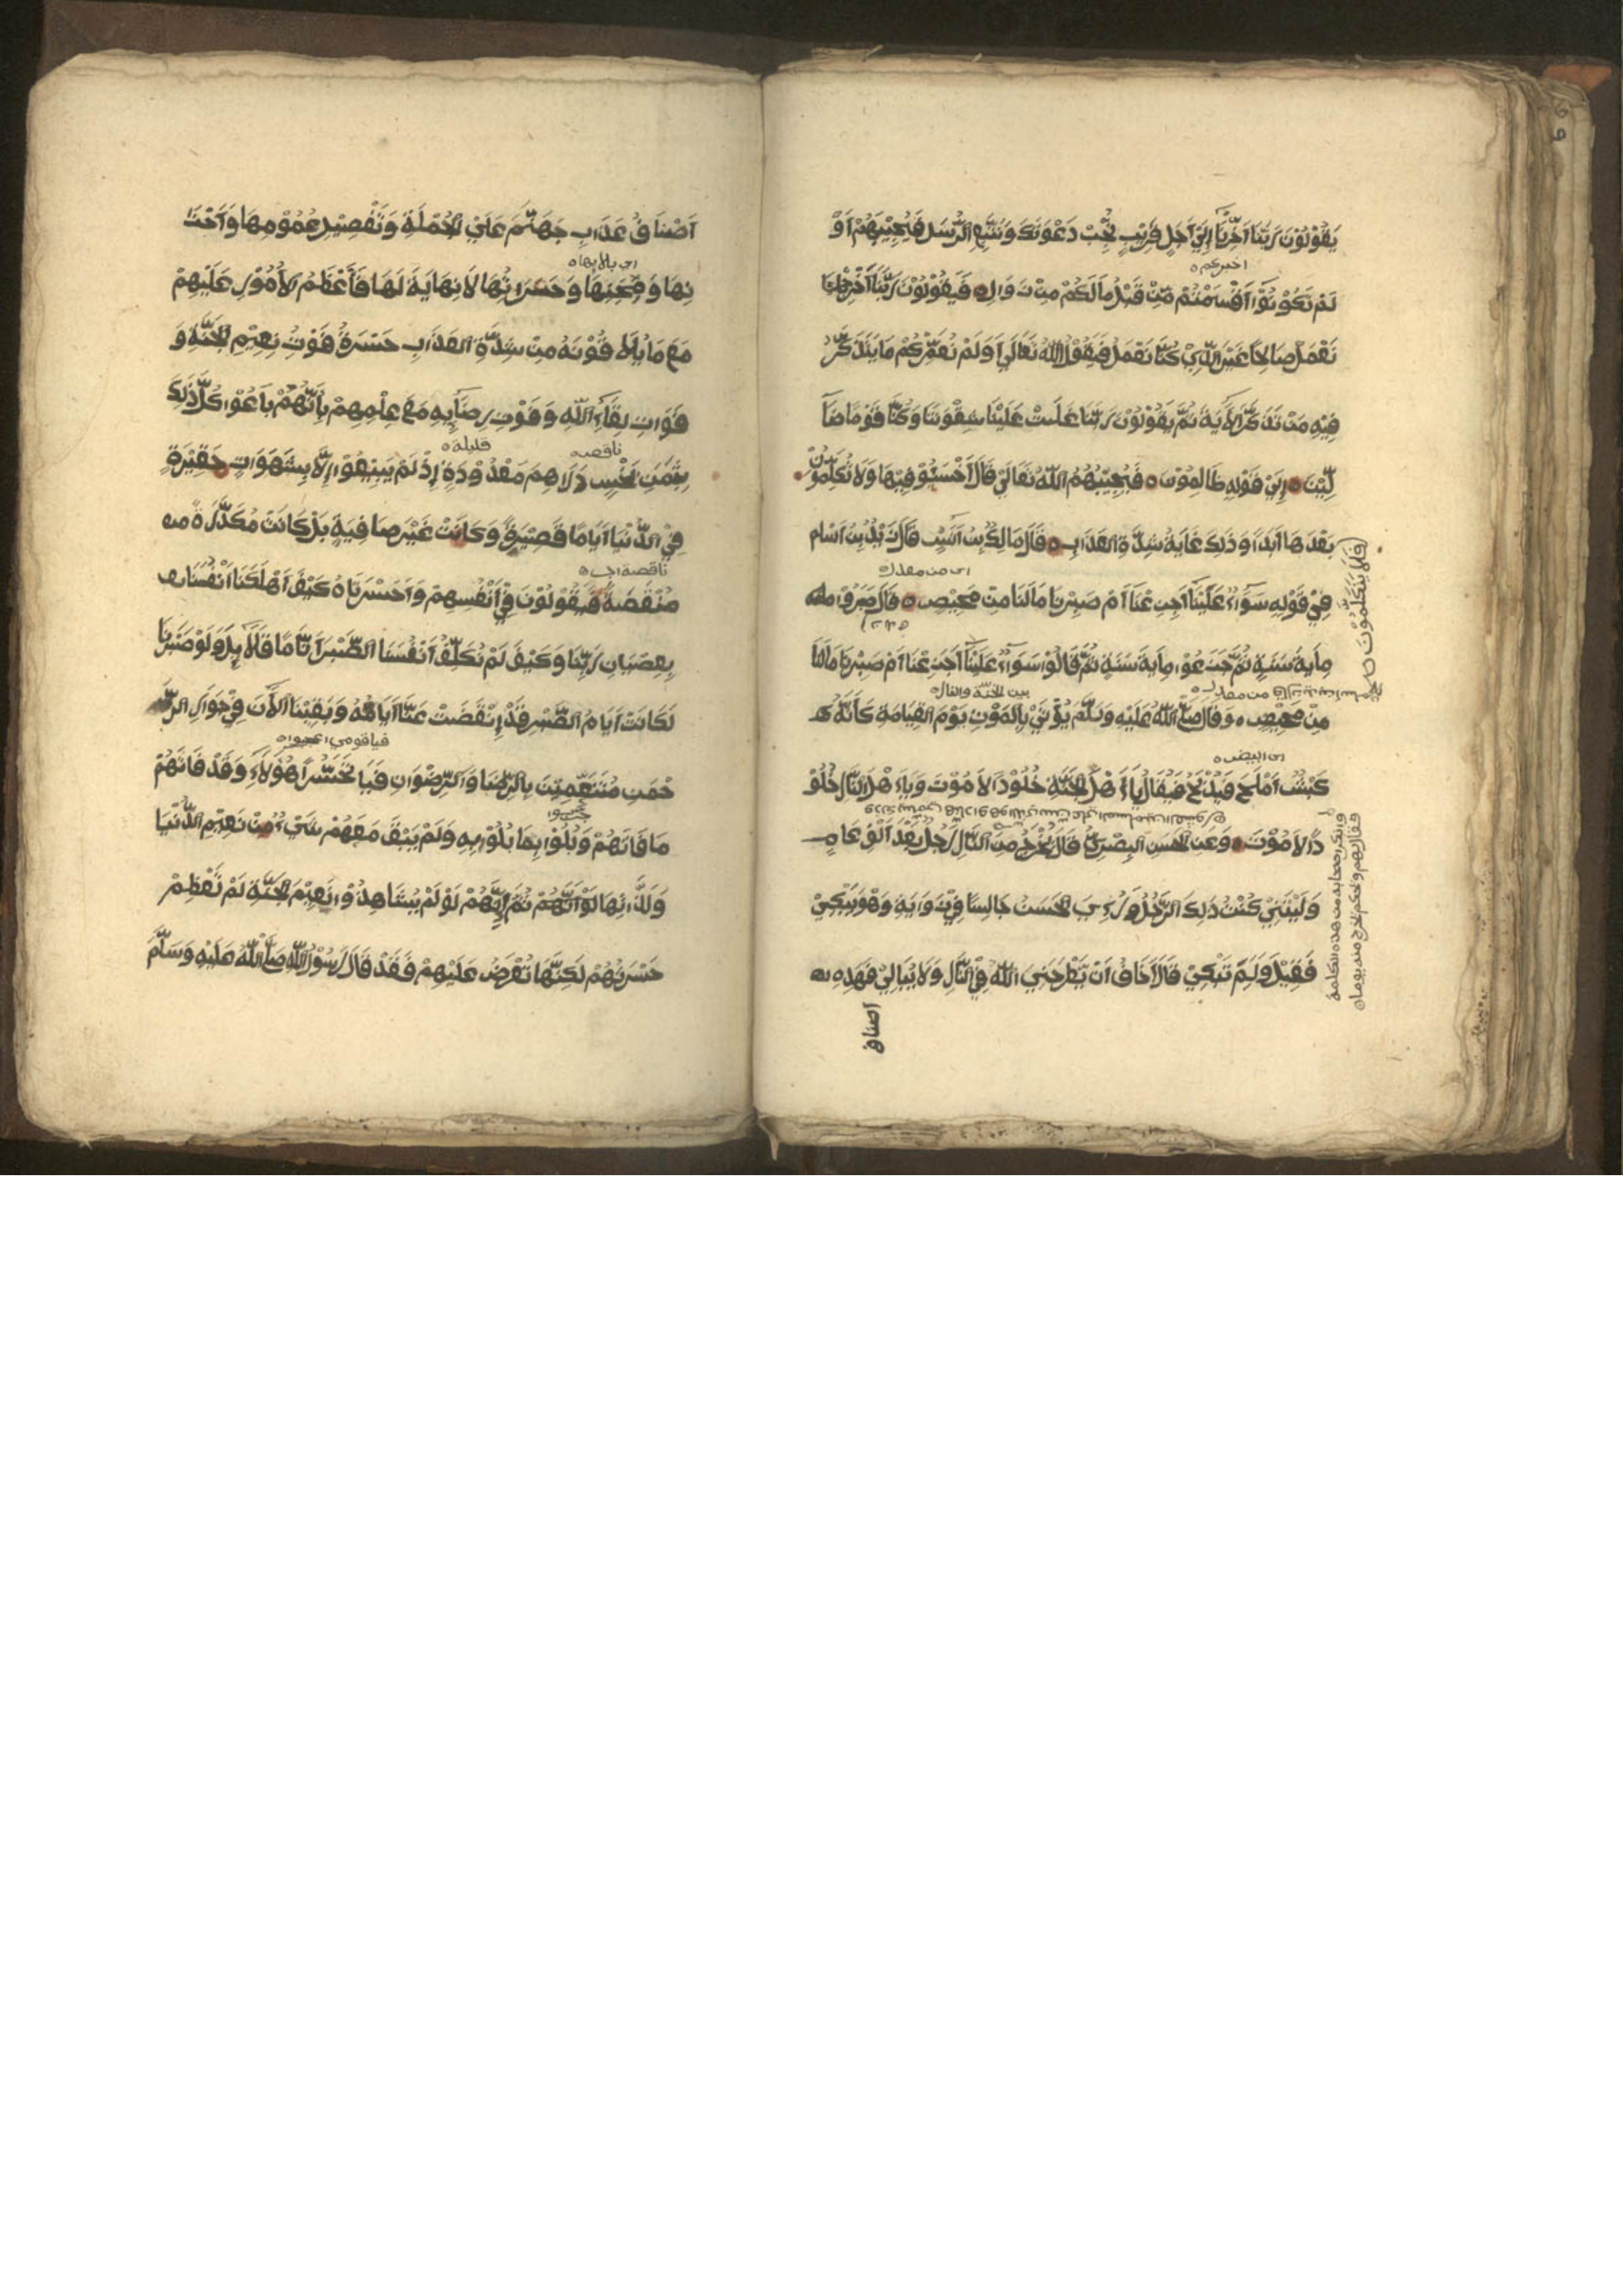 يَقُوْلُوْنَ رَبَّنَا أَخِّرْنَا إِلَيٰ أَجَلٍ قَرِيْبٍ نُّجِبْ دَعْوَتَكَ وَنَتَّبِعِ الرُّسَلَ فَيُجِيْبُهُمْ أَوَ
اخبركم ه
لَمْ تَكُوْنُوْا أَقْسَمْتُمْ مِّنْ قَبْلُ مَالَكُمْ مِنْ زَوَالٍ ه فَيَقُوْلُوْنَ رَبَّنَا أَخْرِجْنَا
نَعْمَلْ صَالِحًا غَيْرَ الَّذِيْ كُنَّا نَعْمَلُ فَيَقُوْلُ اللهُ تَعَالَيٰ أَوَلَمْ نُعَمِّرْكُمْ مَا يَتَذَكَّرُ
فِيْهِ مَنْ تَذَكَّرَ الْأَيَةَ ثُمَّ يَقُوْلُوْنَ رَبَّنَا غَلَبَتْ عَلَيْنَا شِقْوَتُنَا وَكُنَّا قَوْمًا ضَآ
لِّيْنَ ه إِلَيٰ قَوْلِهِ ظَالِمُوْنَ ه فَيُجِيْبُهُمُ اللهُ تَعَالَيٰ قَالَ اَخْسَئُوْ فِيْهَا وَلَا تُكَلِّمُوْنِ
(فَلَا يَتَكَلَّمُوْنَ
بَعْدَهَا أَبَدًا وَذَلِكَ غَايَةُ شِدَّةِ العَذَابِ ه قَالَ مَالِكُ بْنُ أَنَسٍ قَالَ زَيْدُ بْنُ أَسْلَم
اى من مفدر ه
فِيْ قَوْلِهِ سَوَآءٌ عَلَيْنَآ أَجَزِعْنَا أَمْ صَبَرْنَا مَالَنَا مِنْ مَحِيْصٍ ه قَالَ صَبَرُوْا
مِأَيةَ سَنَةٍ ثُمَّ جَزَعُوْا مِأَيةَ سَنَةٍ ثُمَّ قَالُوْا سَوَآءٌ عَلَيْنَآ أَجَزِعْنَا أَمْ صَبَرْنَا مَالَنَا
بين الجنّة والنار ه
مِنْ مَحِيْصٍ ه وَقَالَ صَلَّي اللهُ عَلَيْهِ وَسَلَّمَ يُؤْتَيٰ بِالمَوْتِ يَوْمَ القِيَامَةِ كَأَنَّهُ
اى ابيض ه
كَبْشٌ أَمْلَحَ فَيُذْبَحُ فَيُقَالُ يَآ أَهْلَ الجَنَّةِ خُلُوْدٌ الَا مَوْتَ وَيَآ أَهْلَ النَّارِ خُلُوْ
دٌ الَا مَوْتَ ه وَعَنِ الحَسَنِ البِصْرِيِّ قَالَ يُخْرَجُ مِنَ النَّارِ رَجُلٌ بَعْدَ أَلْفِ عَامٍ
وَلَيْتَنِيْ كُنْتُ ذَلِكَ الرَّجُلَ وَرُءِيَ الحَسَنُ جَالِسًا فِيْ زَوَايَةٍ وَهُوَ يَبْكِيْ
فَقِيْلَ وَلِمَ تَبْكِيْ قَالَ أَخَافُ أَنْ يَطْرَحَنِي اللهُ فِيْ النَّارِ وَلَا يُبَالِيْ فَهَذِهِ
وانكر اصحابه من هذه الكلمة
فقال لهم ويحكم
أصناف
أَصْنَافُ عَذَابِ جَهَنَّمَ عَلَيٰ الجُمْلَةِ وَتَفْصِيْلُ غُمُوْمِهَا وَأَحْزَا
اى بلايها ه
نِهَا وَمِحَنِهَا وَحَسَرَاتِهَا لَا نِهَايَةَ لَهَا فَأَعْظَمُ الأُمُوْرِ عَلَيْهِمْ
مَعَ مَا يُلَاقُوْنَهُ مِنْ شِدَّةِ العَذَابِ حَسْرَةُ فَوْتِ نَعِيْمِ الجَنَّةِ وَ
فَوَاتِ لِقَآءِ اللهِ وَفَوْتِ رِضَآيِهِ مَعَ عِلْمِهِمْ بِأَنَّهُمْ بَاعُوْا كُلَّ ذَلِكَ
ناقصه قليلة ه
بِثَمَنٍ بَخْسٍ دَرَاهِمَ مَعْدُوْدَةٍ إِذْ لَمْ يَبِيْعُوْا إِلَّا بِشَهَوَاتٍ حَقِيْرَةٍ
فِيْ الدُّنْيَا أَيَّامًا قَصِيْرَةً وَكَانَتْ غَيْرَ صَافِيَةٍ بَلْ كَانَتْ مُكَدَّرَةً
ناقصة اى ه
مُنَقَّصَةً فَيَقُوْلُوْنَ فِيْ أَنْفُسِهِمْ وَاحَسْرَتَاهُ كَيْفَ أَهْلَكْنَا أَنْفُسَنَا
بِعِصْيَانِ رَبِّنَا وَكَيْفَ لَمْ نُكَلِّفْ أَنْفُسَنَا الصَّبْرَ أَيَّامًا قَلَآئِلَ وَلَوْ صَبَرْنَا
لَكَانَتْ أَيَامُ الصَّبْرِ قَدْ إِنْقَضَتْ عَنَّا أَيَامُهُ وَبَقِيْنَا الأٰنَ فِيْ جَوَارِ الرَّ
فياقومي اعجبوا ه
حْمٰنِ مُتَنَعِّمِيْنَ بِالرِّضَا وَالرِّضْوَانِ فَيَا تَحَسُّرًا هٰؤُلَآءِ وَقَدْ فَاتَهُمْ
مَا فَاتَهُمْ وَبُلُوْا بِمَا بُلُوْا بِهِ وَلَمْ يَبْقَ مَعَهُمْ شَيْءٌ مِنْ نَعِيْمِ الدُّنْيَا
وَلَذَّاتِهَا لَوْ أَنَّهُمْ ثُمَّ إِنَّهُمْ لَوْ لَمْ يُشَاهِدُوْا نَعِيْمَ الجَنَّةِ لَمْ تَعْظُمْ
حَسْرَتُهُمْ لَكِنَّهَا تُعْرَضُ عَلَيْهِمْ فَقَدْ قَالَ رَسُوْلُ اللهِ صَلَّي اللهُ عَلَيْهِ وَسَلَّمَ